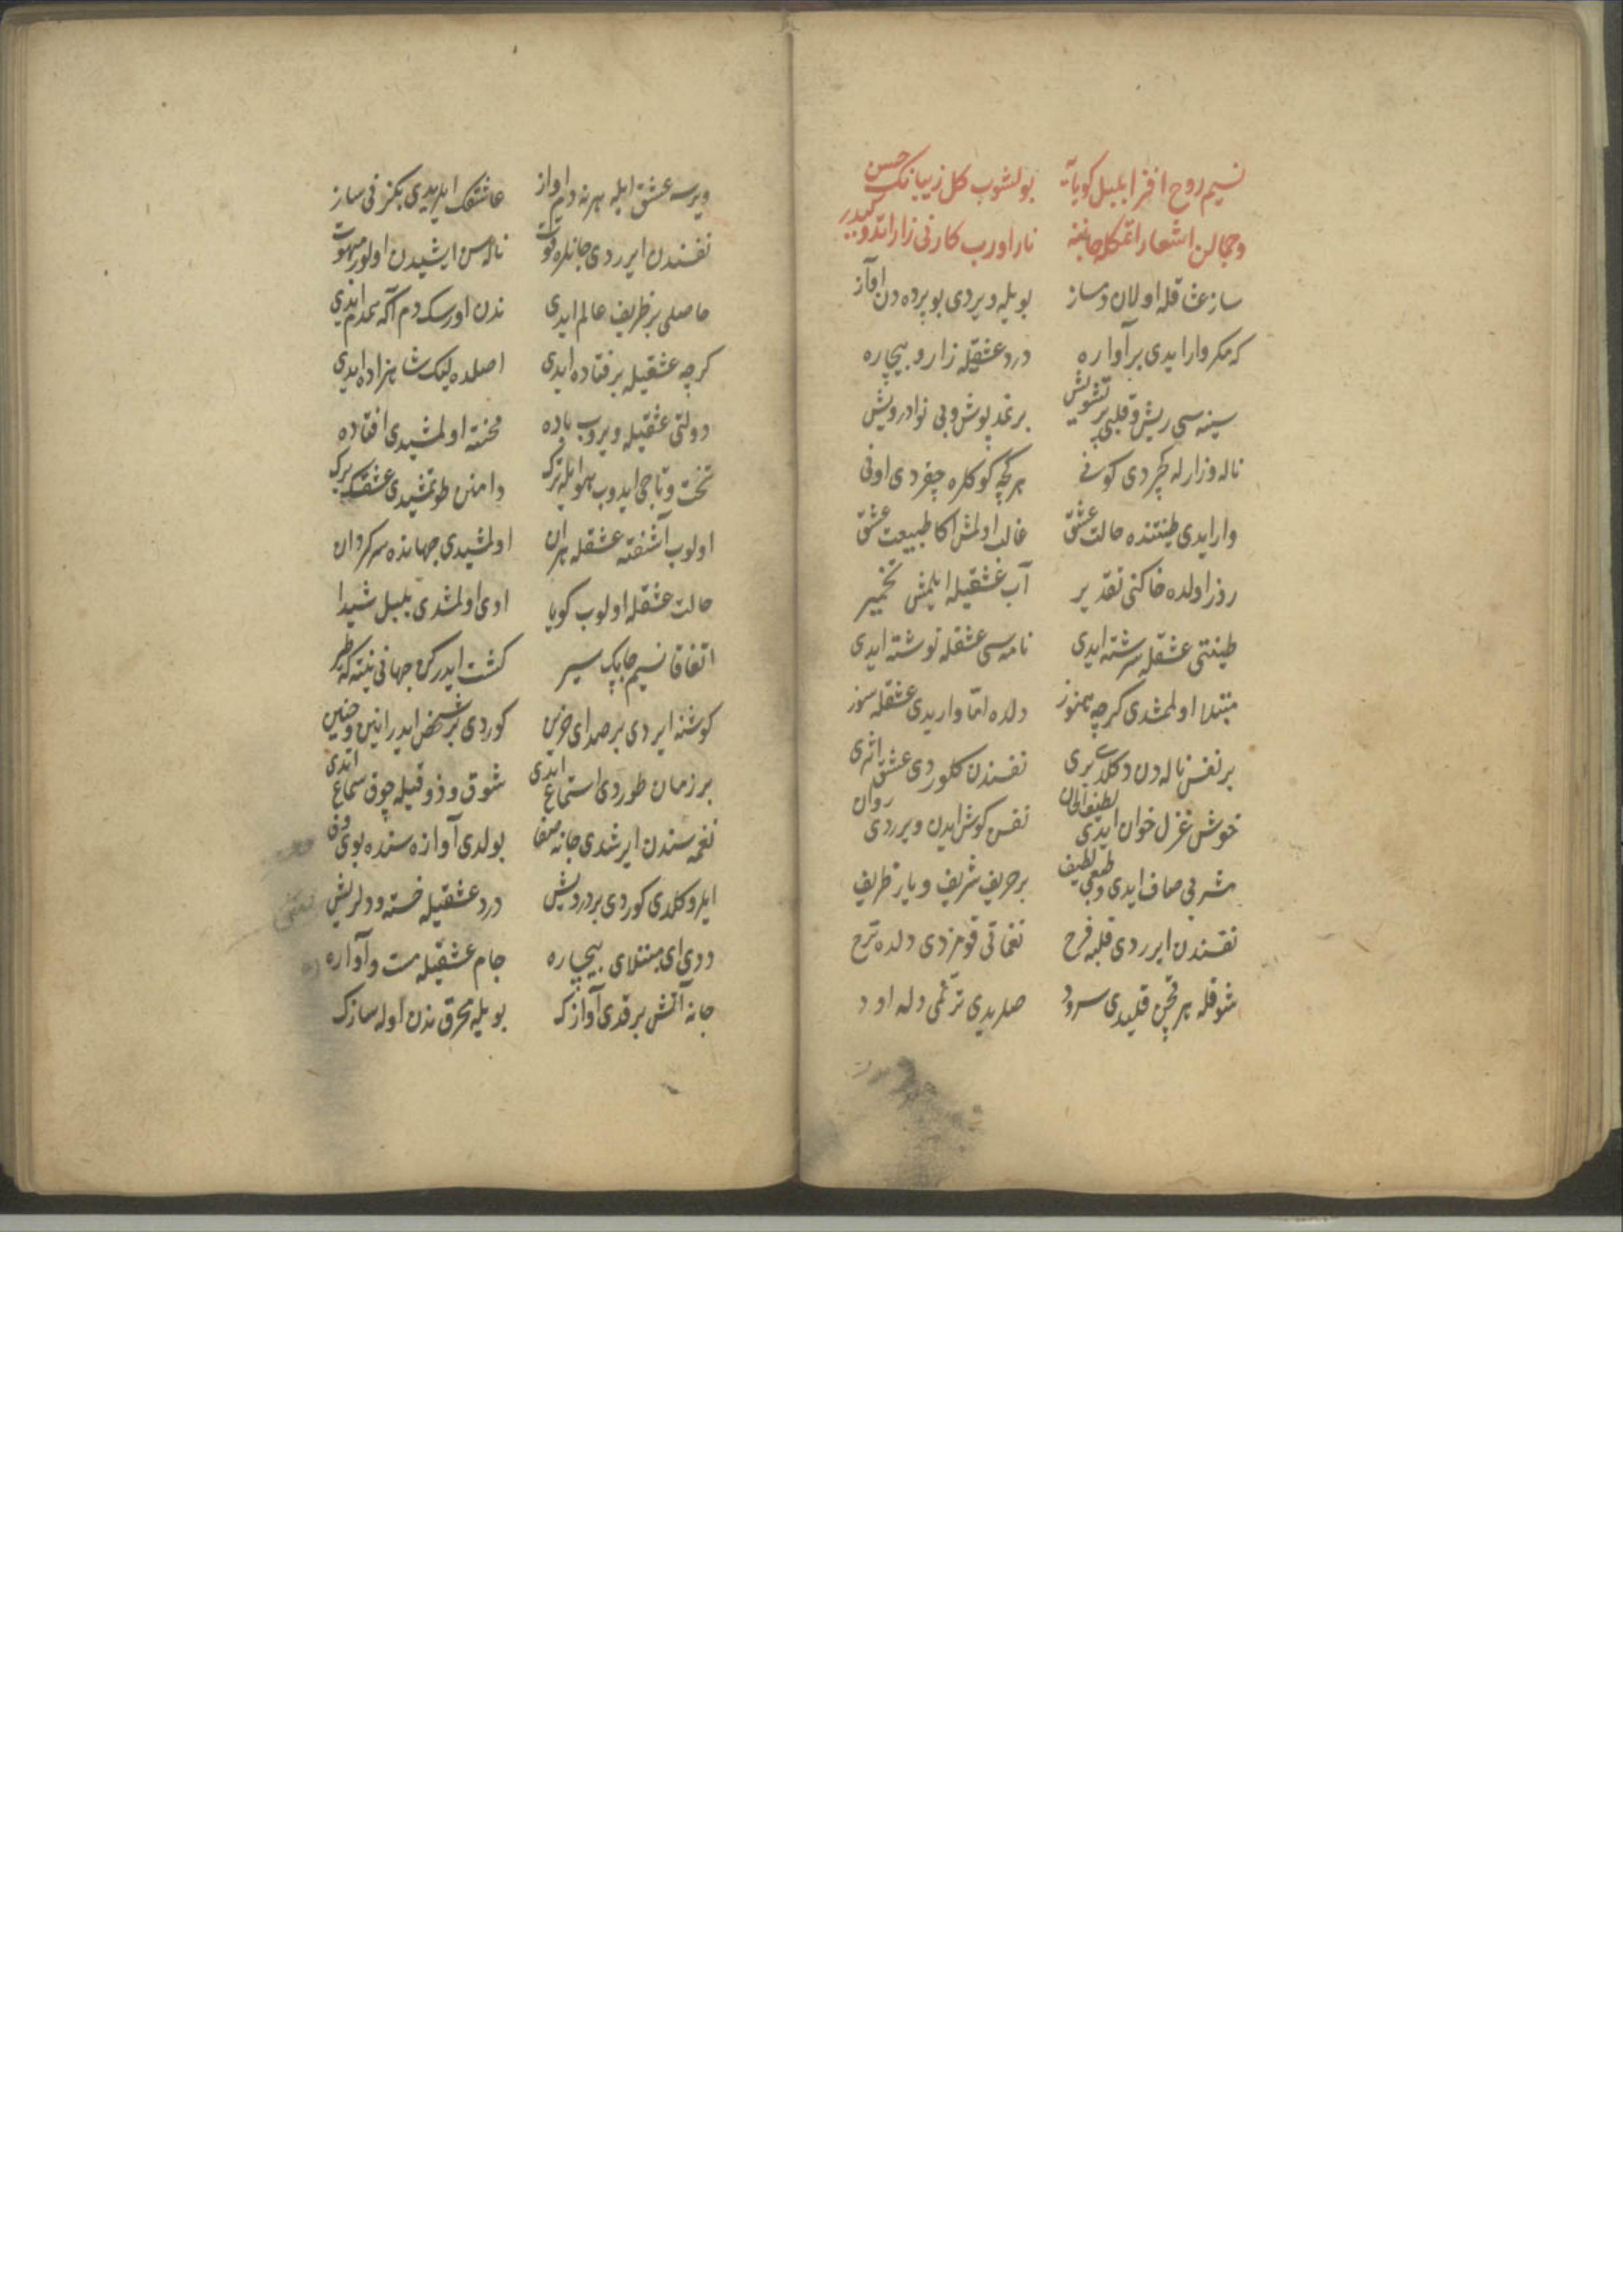 نسیم روح افزا بلبل کویایه بولشوب کل زیبانک حسن
وجمالن اشعار اتمکله جاننه نار اورب کارنی زار اتدوکیدر
ساز عشاقله اولان دمساز بویله ویردی بو پرده دن آواز
که مکر وار ایدی بر آواره درد عشقیله زار و بیچاره
سینه سی ریش و قلبی پر تشویش بر نمد پوش و بی نوا درویش
ناله وزارله کچردی کونی هر کیجه کوکلره چقردی اونی
وار ایدی طینتنده حالت عشق غالب اولمش اکا طبیعت عشق
روز اولده خاکنی تقدیر آب عشقیله ایلمش تخمیر
طینتی عشقله سرشته ایدی نامه سی عشقله نوشته ایدی
مبتلا اولمشدی کرچه هنوز دلده امّا واریدی عشقله سوز
بر نفس ناله دن دکلدی بری نفسندن کلوردی عشق اثری
خوش غزل خوان ایدی لطیف الحان نفس کوش ایدن ویرردی روان
مشربی صاف ایدی وطبعی لطیف بر حریف شریف و یار ظریف
نفسندن ایرردی قلبه فرح نغماتی قومزدی دلده ترح
شوقله هر قچن قلیدی سرود صلریدی ترنّمی دله اود
ویرسه عشق ایله هرنه دم آواز عاشقک ایریدی بکزنی ساز
نفسندن ایرردی جانلره قوت ناله سن ایشیدن اولور مبهوت
حاصلی بر ظریف عالم ایدی ندن اورسک دم آکه همدم ایدی
کرچه عشقیله بر فتاده ایدی اصلده لیک شاهزاده ایدی
دولتی عشقیله ویروب باده محنته اولمشیدی افتاده
تخت و تاجی ایدوب هوا ایله ترک دامنن طوتمشیدی عشقک برک
اولوب آشفته عشقله هر آن اولمشیدی جهانده سرکردان
حالت عشقله اولوب کویا اوی اولمشدی بلبل شیدا
اتفاقا نسیم چابک سیر کشت ایدرکن جهانی نیته که طیر
کوشنه ایردی بر صدای حزین کوردی بر شخص ایدر انین وحنین
بر زمان طوردی استماع ایدی شوق و ذوقیله چوق سماع ایدی
نغمه سندن ایرشدی جانه صفا بولدی آوازه سنده بوی وفا
ایلرو کلدی کوردی بر درویش درد عشقیله خسته و دلریش
ددی ای مبتلای بیچاره جام عشقیله مست و آواره
جانه آتش برقدی آوازک بویله محرق ندن اوله سازک